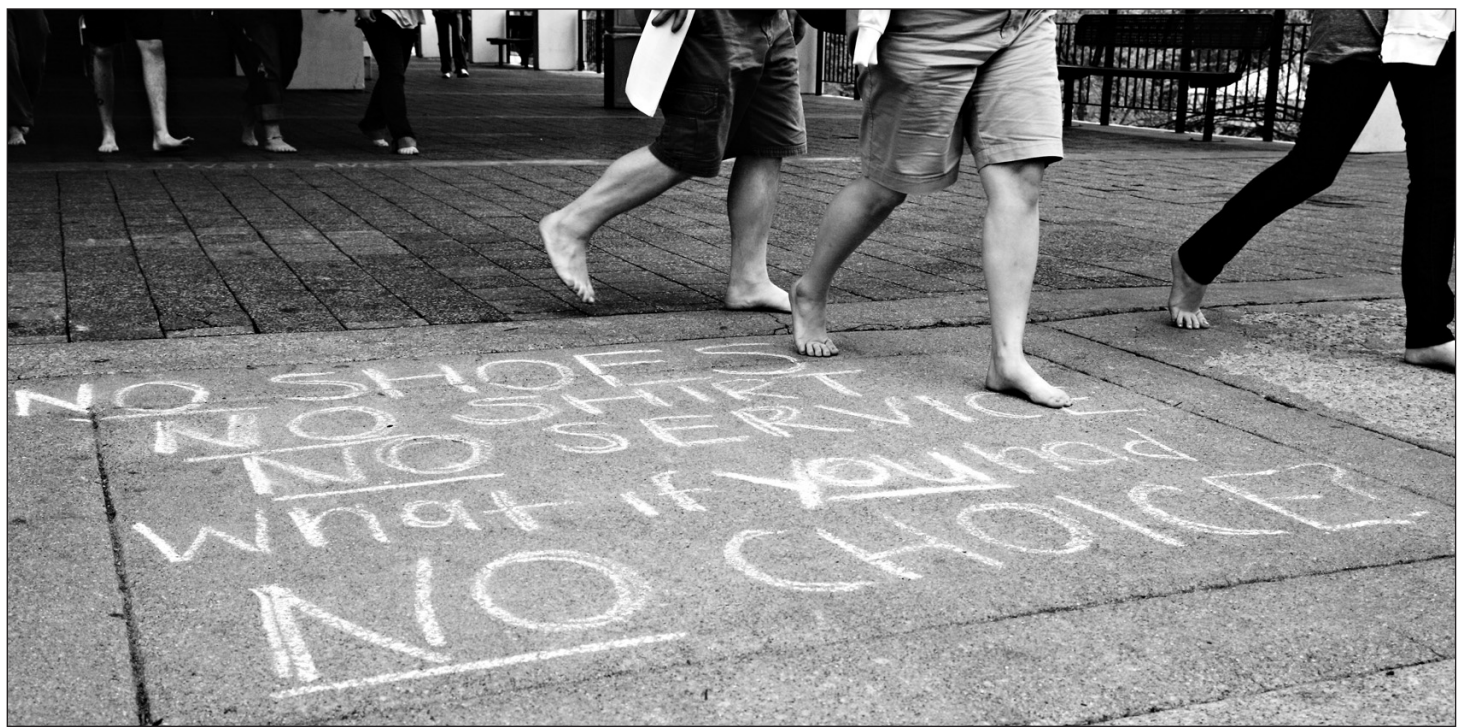 NO SHOES
NO SHIRT
NO SERVICE
What if you had
NO CHOICE?